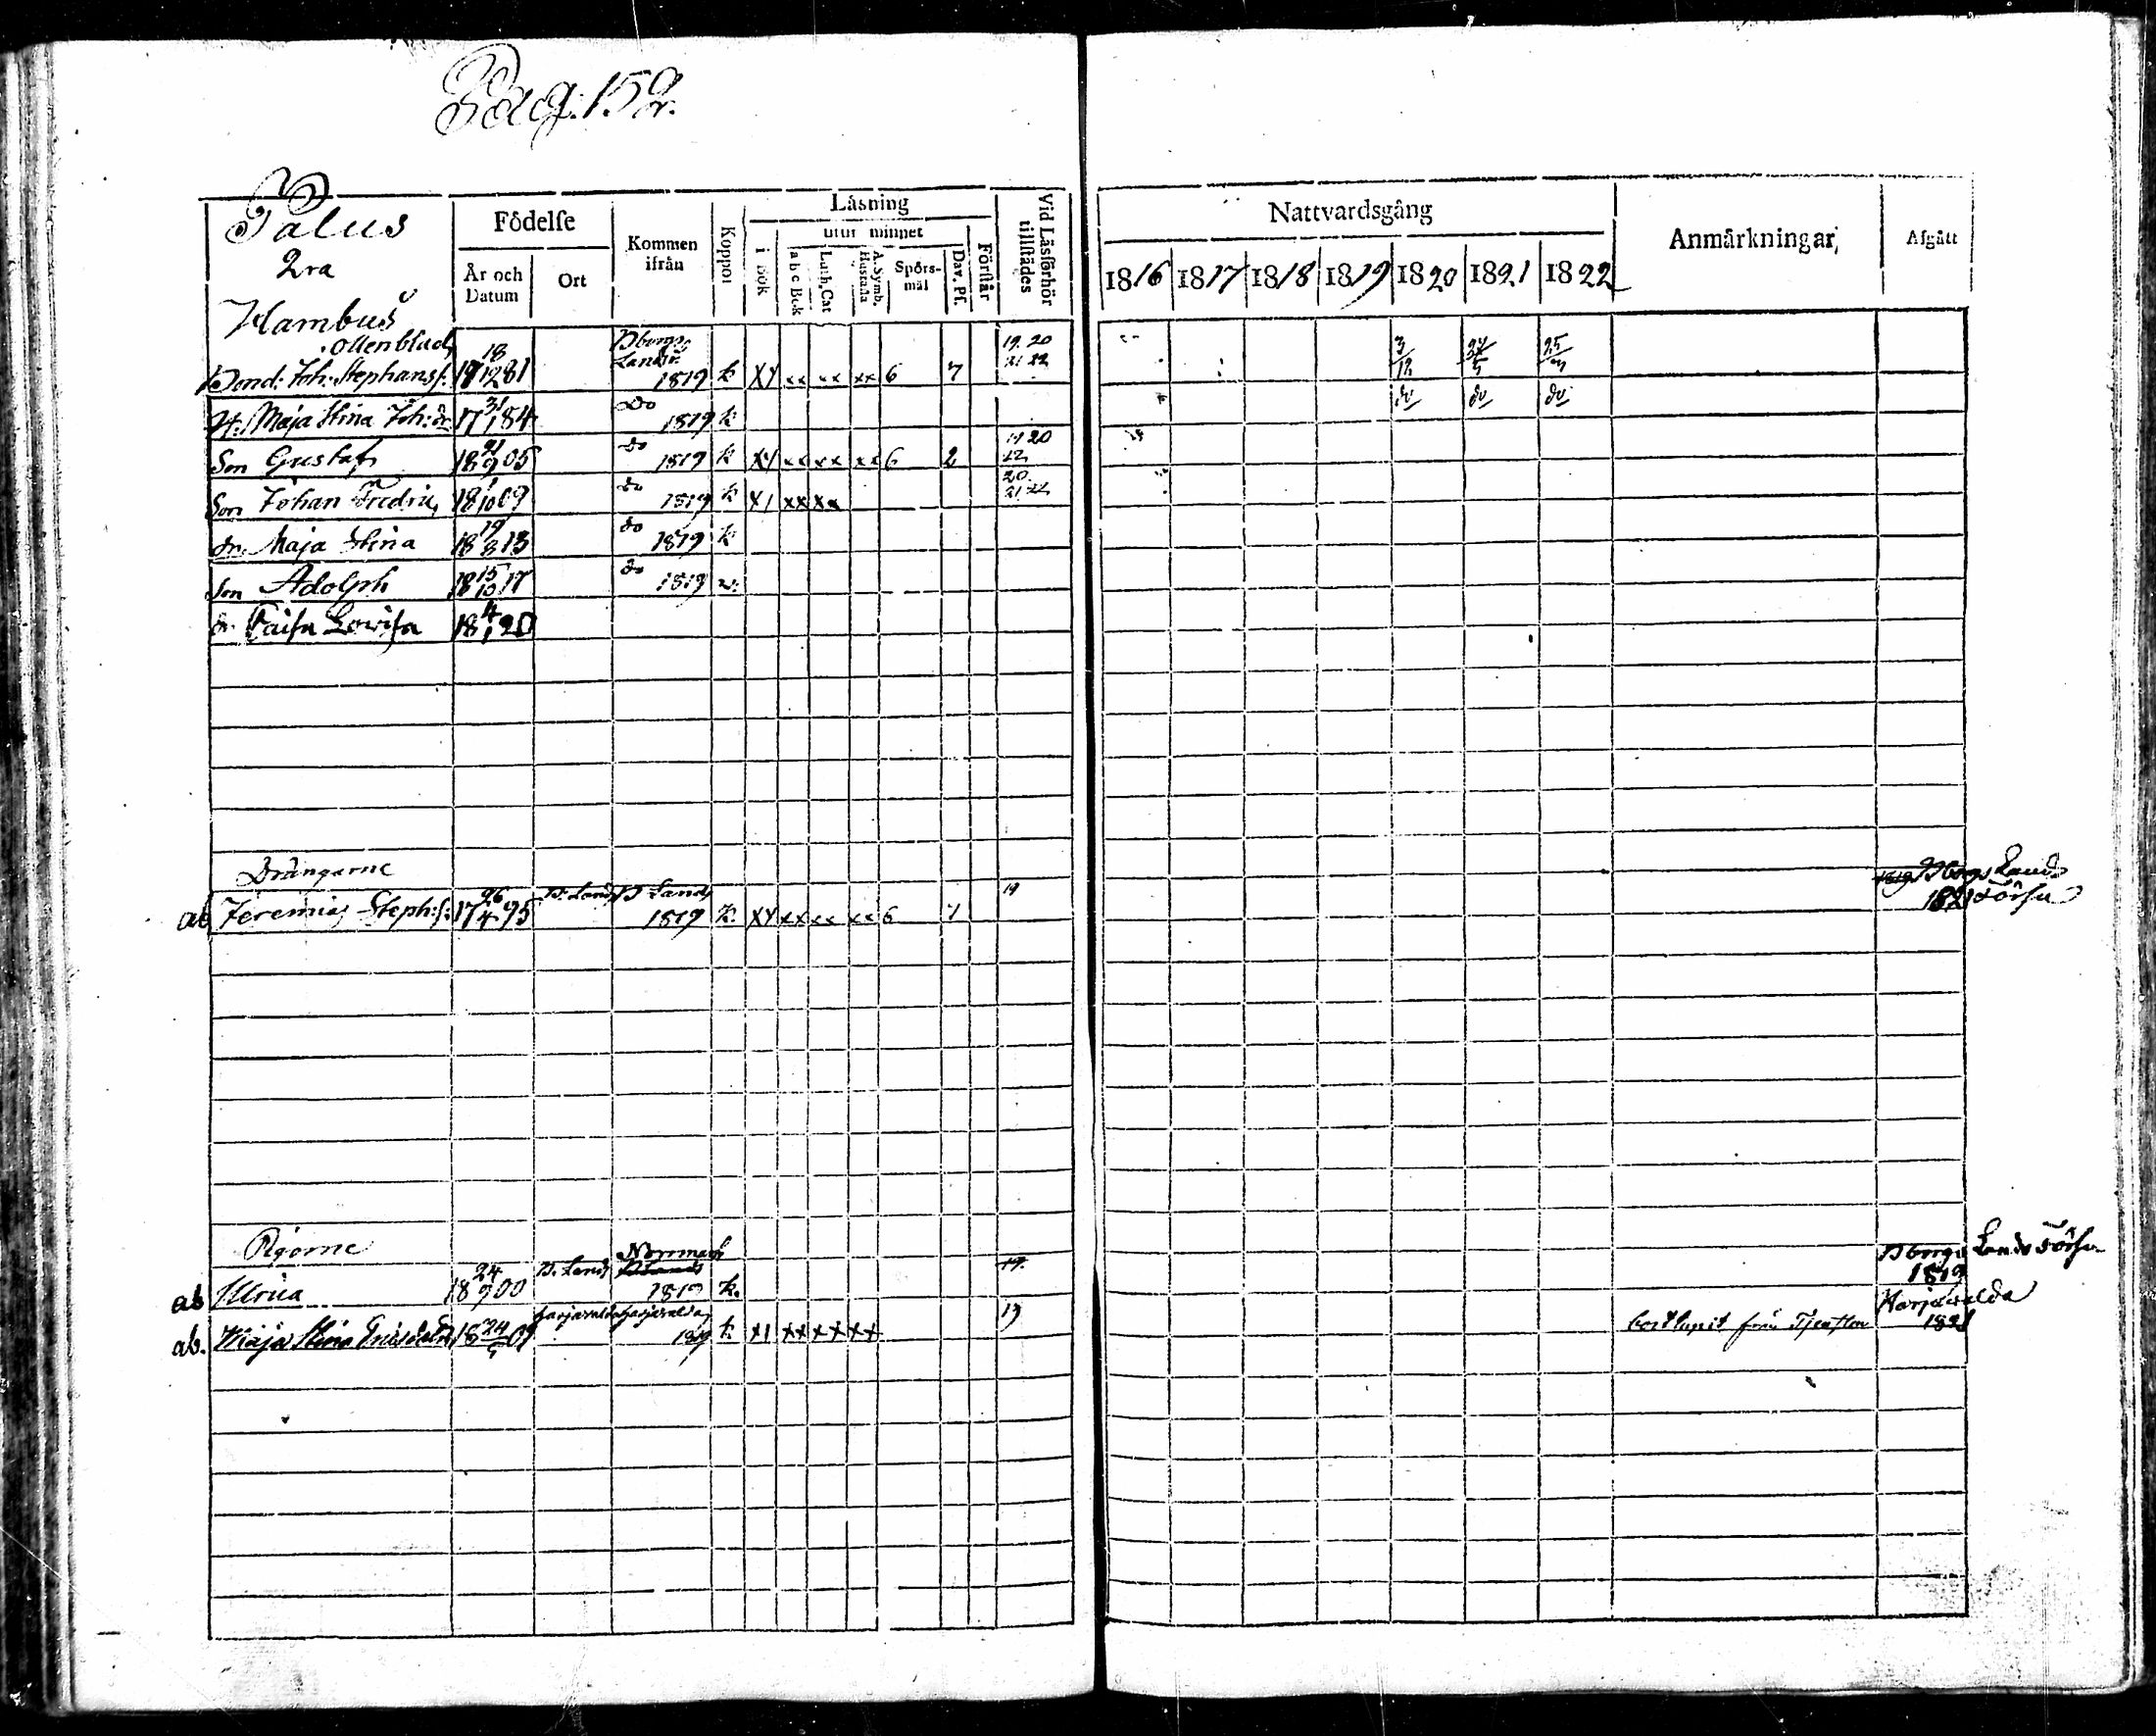 Pag. 152.
Pålus
2ra
Hambus
Födelse
År och Datum
Ort
Kommen ifrån
Koppor
Läsning
i Bok
utur minnet
a b c Bok
Luth. Cat
A. Symb. Hustafla
Spörsmål
Dav. Ps.
Förstår
Vid Läsförhör tillstädes
Nattvardsgång
1816 1817 1818 1819 1820 1821 1822
Anmärkningar
Afgått
Bond: Joh: Stephanss: 17 18/12 81 Bborgs Lands 1819 k XY xx xx xx 6 7 19. 20 21 22 3/12 24/5 25/3
H: Maja Stina Joh: dr 17 31/1 84 do 1819 k do do do
Son Gustaf 18 21/9 05 do 1819 k XY xx xx xx 6 2 19 20 22
Son Johan Fredric 18 1/10 09 do 1819 k XI xx xx 20. 21 22
dr. Maja Stina 18 19/8 13 do 1819 k
Son Adolph 18 15/10 17 do 1819 v.
dr. Caisa Lovisa 18 4/1 20
Drängarne
ab Jeremias Steph: s: 17 26/4 95 B. Lands B Lands 1819 k. XY xx xx xx 6 7 19 1819 Bborgs Lands
1821 Förs:
Pigorne
ab Ulrica 18 24/9 00 B. Lands Norrmark B Lands 1819 k. 19. Bborgs Lands Förs:
1819
ab. Maja Stina Ericsdr 18 24/5 01 Harjavalda Harjavalda 1819 k XI xx xx xx 19 bortlupit från Tjensten Harjavalda
1821